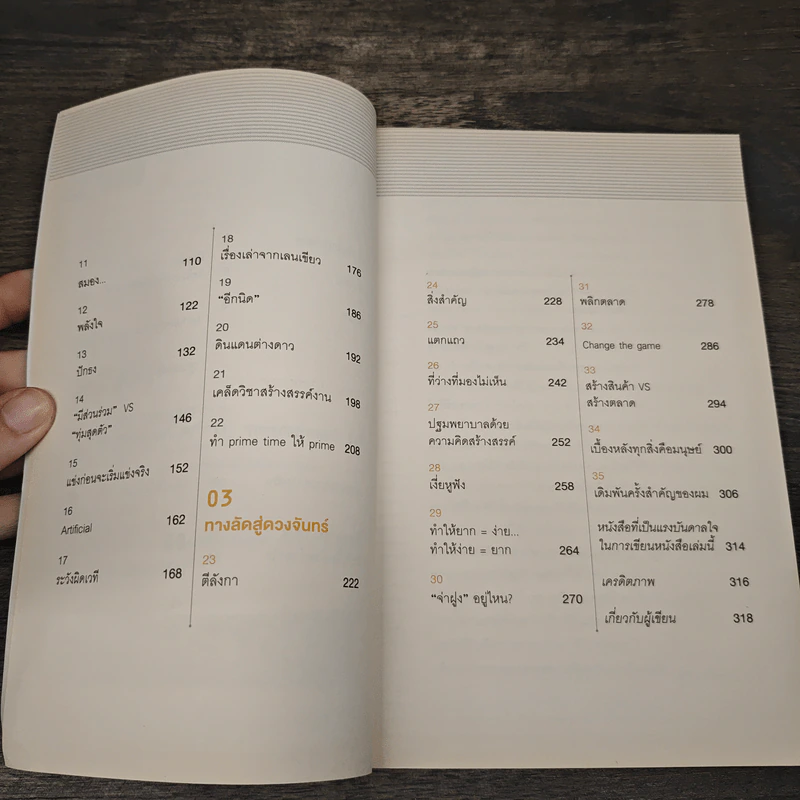 11
สมอง... 110
12
พลังใจ 122
13
ปักธง 132
14
“มีส่วนร่วม” VS
“ทุ่มสุดตัว” 146
15
แข่งก่อนจะเริ่มแข่งจริง 152
16
Artificial 162
17
ระวังผิดเวที 168
18
เรื่องเล่าจากเลนเขียว 176
19
“อีกนิด” 186
20
ดินแดนต่างดาว 192
21
เคล็ดวิชาสร้างสรรค์งาน 198
22
ทำ prime time ให้ prime 208
03
ทางลัดสู่ดวงจันทร์
23
ตีลังกา 222
24
สิ่งสำคัญ 228
25
แตกแถว 234
26
ที่ว่างที่มองไม่เห็น 242
27
ปฐมพยาบาลด้วย
ความคิดสร้างสรรค์ 252
28
เงี่ยหูฟัง 258
29
ทำให้ยาก = ง่าย...
ทำให้ง่าย = ยาก 264
30
“จ่าฝูง” อยู่ไหน? 270
31
พลิกตลาด 278
32
Change the game 286
33
สร้างสินค้า VS
สร้างตลาด 294
34
เบื้องหลังทุกสิ่งคือมนุษย์ 300
35
เดิมพันครั้งสำคัญของผม 306
หนังสือที่เป็นแรงบันดาลใจ
ในการเขียนหนังสือเล่มนี้ 314
เครดิตภาพ 316
เกี่ยวกับผู้เขียน 318